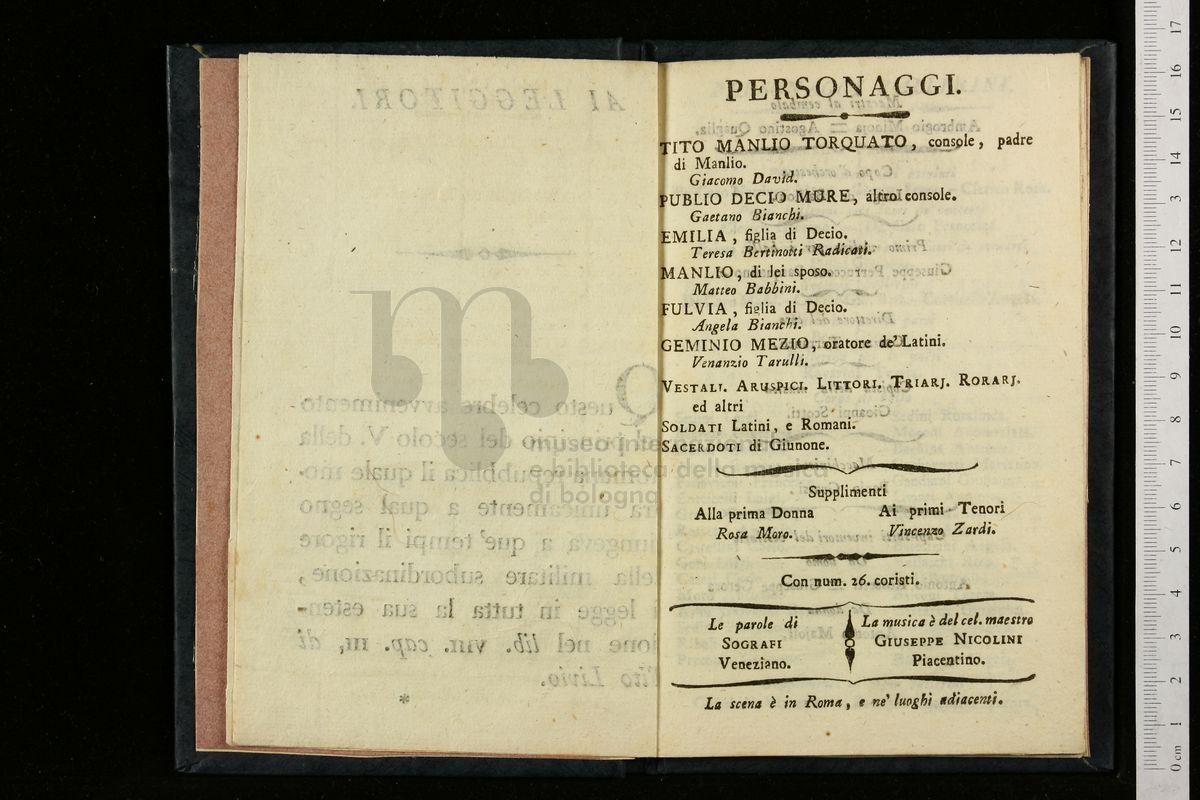 PERSONAGGI.
TITO MANLIO TORQUATO, console, padre
di Manlio.
Giacomo David.
PUBLIO DECIO MURE, altro console.
Gaetano Bianchi.
EMILIA, figlia di Decio.
Teresa Bertinotti Radicati.
MANLIO, di lei sposo.
Matteo Babbini.
FULVIA, figlia di Decio.
Angela Bianchi.
GEMINIO MEZIO, oratore de' Latini.
Venanzio Tarulli.
VESTALI. ARUSPICI. LITTORI. TRIARJ. RORARJ.
ed altri
SOLDATI Latini, e Romani.
SACERDOTI di Giunone.
Supplimenti
Alla prima Donna
Rosa Moro.
Ai primi Tenori
Vincenzo Zardi.
Con num. 26. coristi.
Le parole di
SOGRAFI
Veneziano.
La musica è del cel. maestro
GIUSEPPE NICOLINI
Piacentino.
La scena è in Roma, e ne' luoghi adiacenti.
museo internazionale
e biblioteca della musica
di bologna
0 cm 1 2 3 4 5 6 7 8 9 10 11 12 13 14 15 16 17